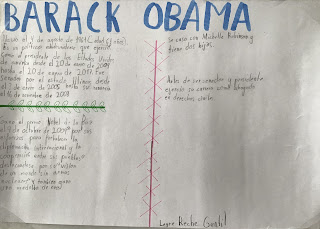 BARACK OBAMA
Nació el 4 de agosto de 1961 edad (años).
Es un político estadounidense que ejerció
como el presidente de los Estados Unidos
de america desde el 20 de enero de 2009
hasta el 20 de enero de 2017. Fue
Senador por el estado Illinois desde
el 3 de enero de 2005 hasta su renuncia
el 16 de noviembre de 2008
Ganó el premio Nobel de la Paz
9 de octubre de 2009 por sus
para fortalecer la
internacional y la
cooperación entre los pueblos
por su visión
de un mundo sin armas
nucleares y tambien gano
una medalla de oro
Se caso con Michelle Robinson y
tiene dos hijas
Antes de ser senador y presidente
ejercio su carrera como abogado
en derechos civile